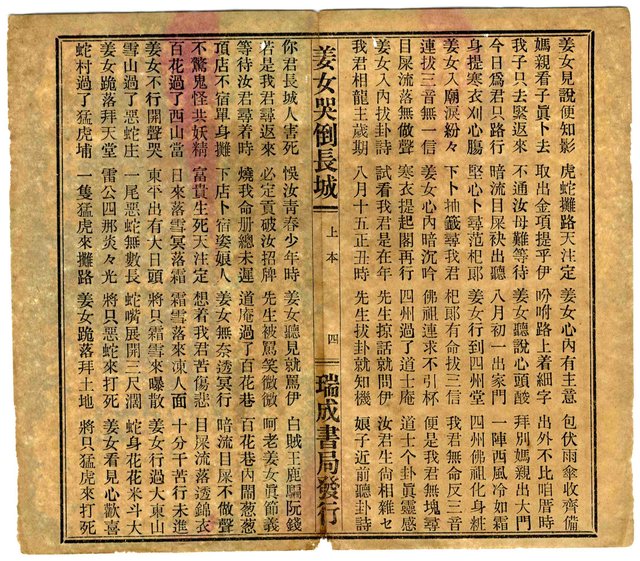 姜女見說便知影 虎蛇攤路天注定 姜女心內有主意 包伏雨傘收齊備
媽親看子眞卜去 取出金項提乎伊 吩咐路上着細字 出外不比咱厝時
我子只去緊返來 不通汝母難等待 姜女聽說心頭酸 拜別媽親出大門
今日爲君只路行 暗流目屎袂出聽 八月初一出家門 一陣西風冷如霜
身提寒衣刈心腸 堅心卜尋范杞郎 姜女行到四州堂 四州佛祖化身粧
姜女入廟淚紛々 下卜抽籤尋我君 杞郎有命拔三信 我君無命反三音
連拔三音無一信 姜女心內暗沉吟 佛祖連求不引杯 便是我君無塊尋
目屎流落無做聲 寒衣提起閣再行 四州過了道士庵 道士个卦眞靈感
姜女入內拔卦詩 試看我君是在年 先生掠話就問伊 汝君生尙相雜七
我君相龍王歲期 八月十五正丑時 先生拔卦就知機 娘子近前聽卦詩
姜女哭倒長城 上本 四 瑞成書局發行
你君長城人害死 悞汝靑春少年時 姜女聽見就罵伊 白賊王鹿騙阮錢
若是我君尋返來 必定貢破汝招牌 先生被罵笑微微 呵老姜女眞節義
等待汝君尋着時 燒我命册總未遲 道庵過了百花巷 百花巷內鬧葱葱
頂店不宿單身攤 下店卜宿姿娘人 姜女無奈透冥行 暗流目屎不做聲
不驚鬼怪共妖精 富貴生死天注定 想着我君苦傷悲 目屎流落透錦衣
百花過了西山當 日來落雪冥落霜 霜雪落來凍人面 十分干苦行未進
姜女不行開聲哭 東平出有大日頭 將只霜雪來曝散 姜女行過大東山
雪山過了惡蛇庄 一尾惡蛇無數長 蛇嘴展開三尺濶 蛇身花花米斗大
姜女跪落拜天堂 雷公四那炎々光 將只惡蛇來打死 姜女看見心歡喜
蛇村過了猛虎埔 一隻猛虎來攤路 姜女跪落拜土地 將只猛虎來打死